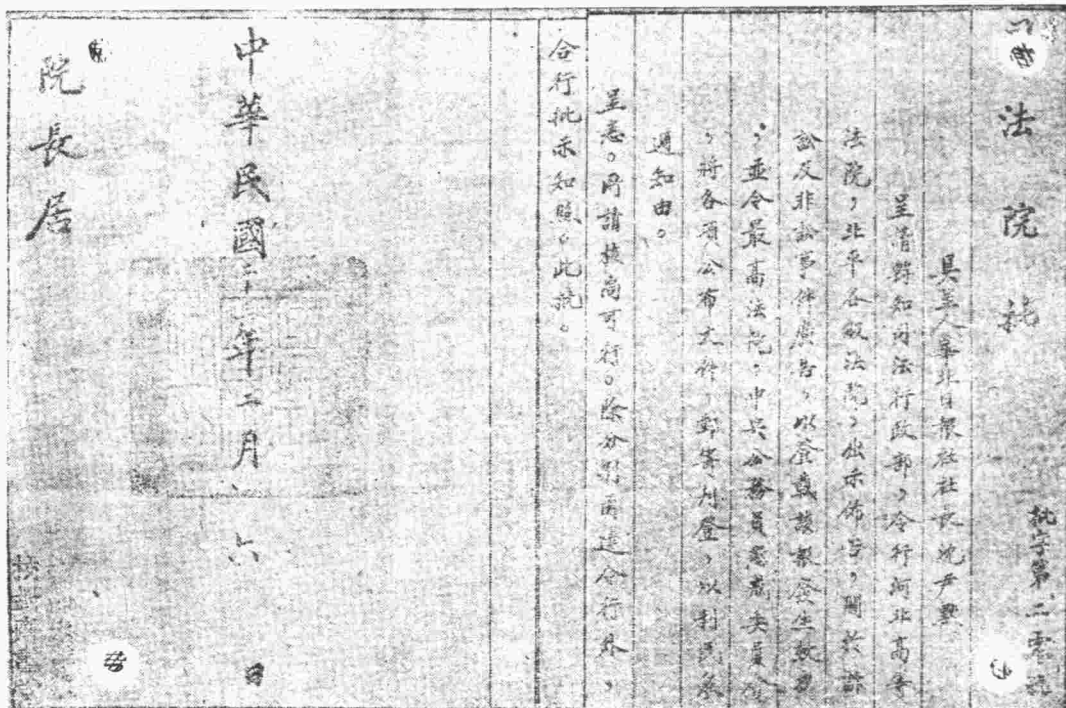 司法院批
批字第二零號
具呈人華北日報社社長沈尹默
呈請轉知司法行政部，令行河北高等
法院，北平各級法院，出示佈告，關於訴
訟及非訟事件廣告，以登載該報發生效力
，並令最高法院，中央公務員懲戒委員會
，將各項公布文件，郵寄刊登，以利民眾
週知由。
呈悉。所請核尚可行。除分別函達令行外，
合行批示知照。此批。
中華民國二十二年二月六日
院長居